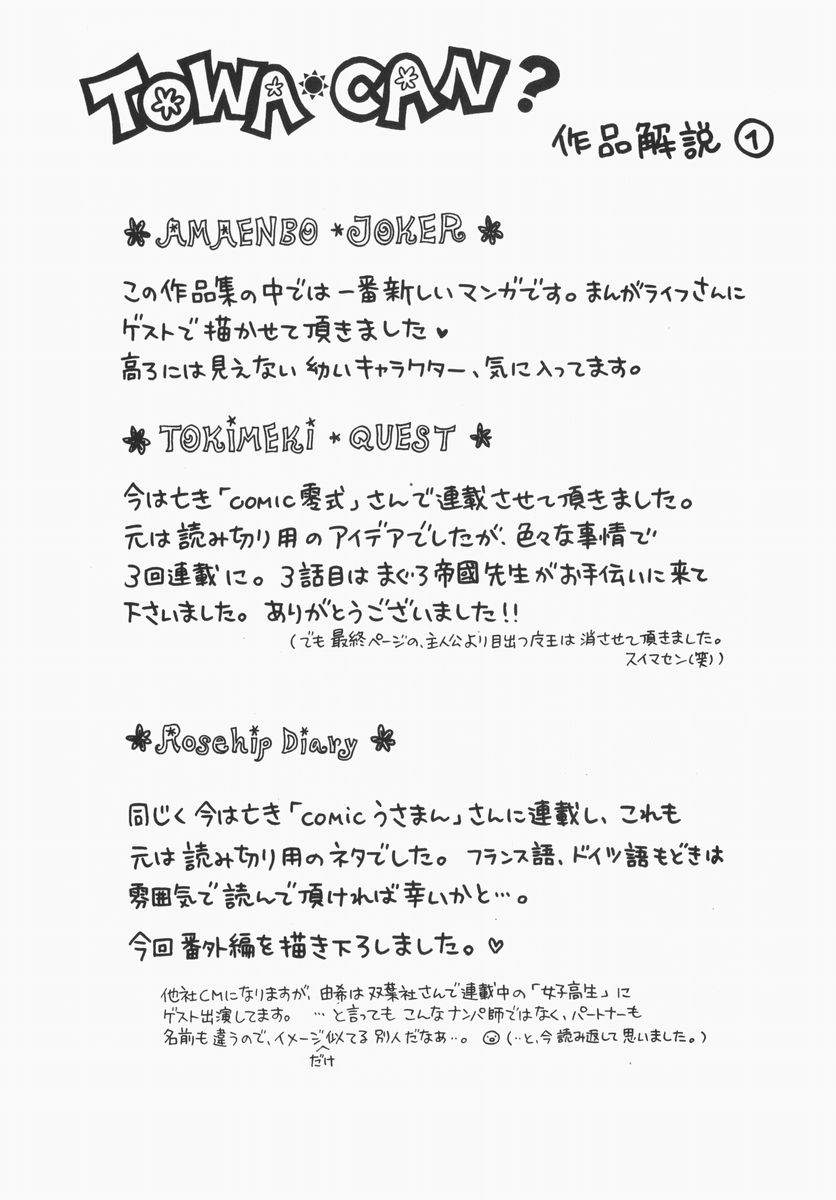 TOWA CAN?
作品解説 ①
AMAENBO * JOKER
この作品集の中では一番新しいマンガです。まんがライフさんに
ゲストで描かせて頂きました♥
高3には見えない幼いキャラクター、気に入ってます。
TOKiMEKi * QUEST
今は亡き「COMIC零式」さんで連載させて頂きました。
元は読み切り用のアイデアでしたが、色々な事情で
3回連載に。3話目はまぐろ帝國先生がお手伝いに来て
下さいました。ありがとうございました!!
(でも最終ページの、主人公より目出つ皮王は消させて頂きました。
スイマセン(笑))
Rosehip Diary
同じく今は亡き「comicうさまん」さんに連載し、これも
元は読み切り用のネタでした。フランス語、ドイツ語もどきは
雰囲気で読んで頂ければ幸いかと…。
今回番外編を描き下ろしました。♡
他社CMになりますが、由希は双葉社さんで連載中の「女子高生」に
ゲスト出演してます。…と言ってもこんなナンパ師ではなく、パートナーも
名前も違うので、イメージだけ似てる別人だなあ…。(…と、今読み返して思いました。)